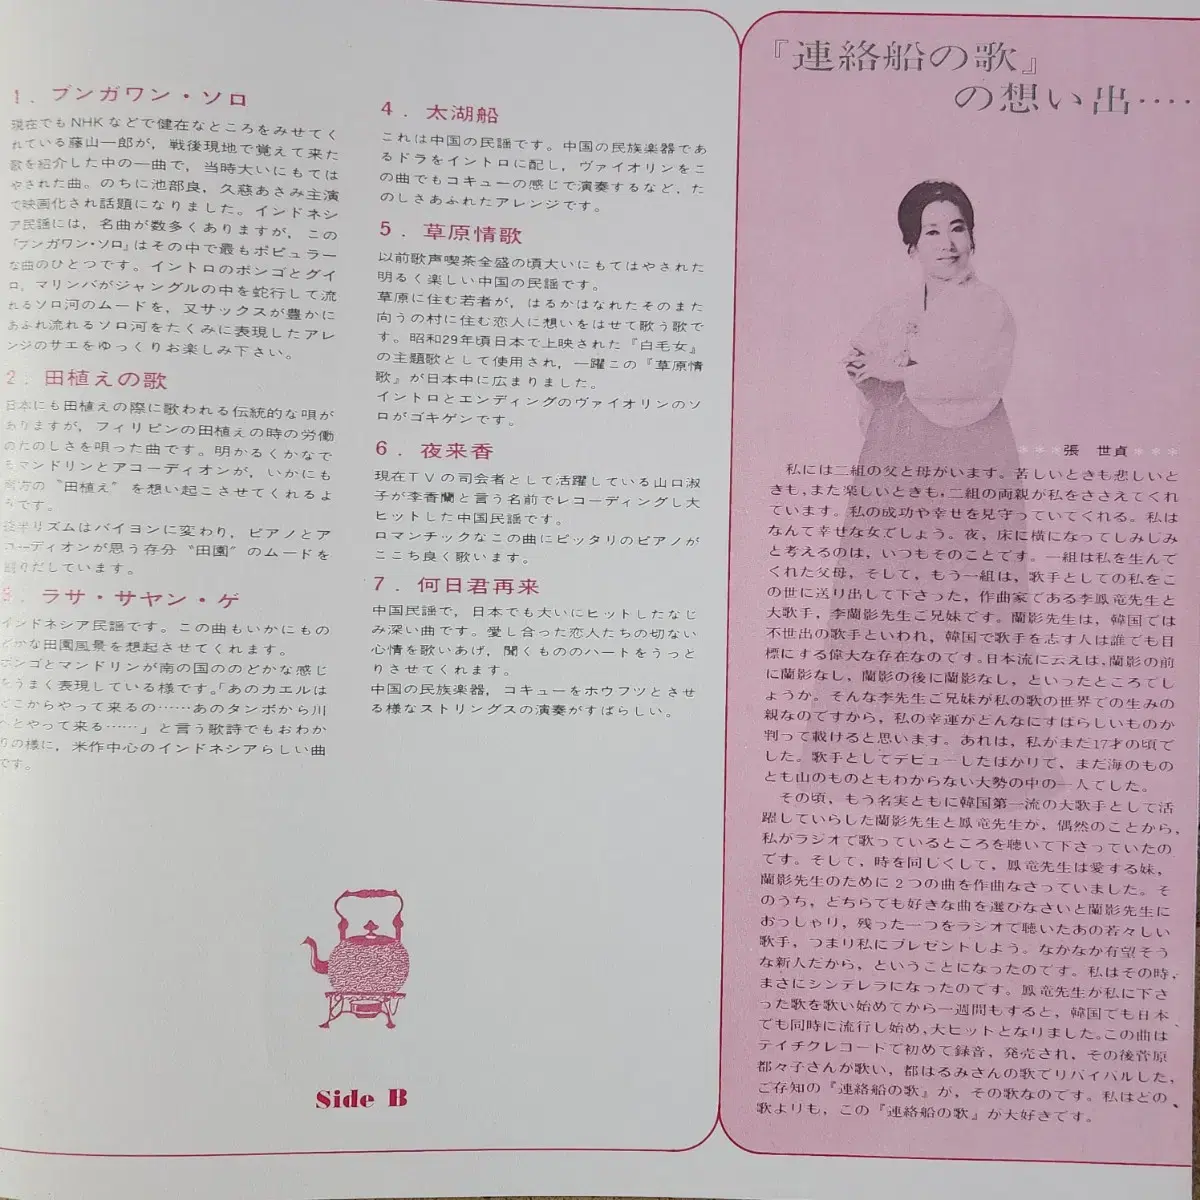 1．ブンガワン・ソロ
現在でもNHKなどで健在なところをみせてく
れている藤山一郎が，戦後現地で覚えて来た
歌を紹介した中の一曲で，当時大いにもては
やされた曲。のちに池部良，久慈あさみ主演
で映画化され話題になりました。インドネシ
ア民謡には，名曲が数多くありますが，この
『ブンガワン・ソロ』はその中で最もポピュラー
な曲のひとつです。イントロのボンゴとグイ
ロ，マリンバがジャングルの中を蛇行して流
れるソロ河のムードを，又サックスが豊かに
あふれ流れるソロ河をたくみに表現したアレ
ンジのサエをゆっくりお楽しみ下さい。
2．田植えの歌
日本にも田植えの際に歌われる伝統的な唄が
ありますが，フィリピンの田植えの時の労働
のたのしさを唄った曲です。明かるくかなで
るマンドリンとアコーディオンが，いかにも
南方の〝田植え〟を想い起こさせてくれるよ
うです。
後半リズムはバイヨンに変わり，ピアノとア
コーディオンが思う存分〝田園〟のムードを
創りだしています。
3．ラサ・サヤン・ゲ
インドネシア民謡です。この曲もいかにもの
どかな田園風景を想起させてくれます。
ボンゴとマンドリンが南の国ののどかな感じ
をうまく表現している様です。「あのカエルは
どこからやって来るの……あのタンボから川
へとやって来る……」と言う歌詩でもおわか
りの様に，米作中心のインドネシアらしい曲
です。
4．太湖船
これは中国の民謡です。中国の民族楽器であ
るドラをイントロに配し，ヴァイオリンをこ
の曲でもコキューの感じで演奏するなど，た
のしさあふれたアレンジです。
5．草原情歌
以前歌声喫茶全盛の頃大いにもてはやされた
明るく楽しい中国の民謡です。
草原に住む若者が，はるかはなれたそのまた
向うの村に住む恋人に想いをはせて歌う歌で
す。昭和29年頃日本で上映された『白毛女』
の主題歌として使用され，一躍この『草原情
歌』が日本中に広まりました。
イントロとエンディングのヴァイオリンのソ
ロがゴキゲンです。
6．夜来香
現在ＴＶの司会者として活躍している山口淑
子が李香蘭と言う名前でレコーディングし大
ヒットした中国民謡です。
ロマンチックなこの曲にピッタリのピアノが
ここち良く歌います。
7．何日君再来
中国民謡で，日本でも大いにヒットしたなじ
み深い曲です。愛し合った恋人たちの切ない
心情を歌いあげ，聞くもののハートをうっと
りさせてくれます。
中国の民族楽器，コキューをホウフツとさせ
る様なストリングスの演奏がすばらしい。
Side B
『連絡船の歌』
の想い出‥‥
＊＊＊張　世貞＊＊＊
私には二組の父と母がいます。苦しいときも悲しいと
きも，また楽しいときも，二組の両親が私をささえてくれ
ています。私の成功や幸せを見守っていてくれる。私は
なんて幸せな女でしょう。夜，床に横になってしみじみ
と考えるのは，いつもそのことです。一組は私を生んで
くれた父母，そして，もう一組は，歌手としての私をこ
の世に送り出して下さった，作曲家である李鳳竜先生と
大歌手，李蘭影先生ご兄妹です。蘭影先生は，韓国では
不世出の歌手といわれ，韓国で歌手を志す人は誰でも目
標にする偉大な存在なのです。日本流に云えは，蘭影の前
に蘭影なし，蘭影の後に蘭影なし，といったところでし
ょうか。そんな李先生ご兄妹が私の歌の世界での生みの
親なのですから，私の幸運がどんなにすばらしいものか
判って戴けると思います。あれは，私がまだ17才の頃で
した。歌手としてデビューしたばかりで，まだ海のもの
とも山のものともわからない大勢の中の一人でした。
その頃，もう名実ともに韓国第一流の大歌手として活
躍していらした蘭影先生と鳳竜先生が，偶然のことから，
私がラジオで歌っているところを聴いて下さっていたの
です。そして，時を同じくして，鳳竜先生は愛する妹，
蘭影先生のために２つの曲を作曲なさっていました。そ
のうち，どちらでも好きな曲を選びなさいと蘭影先生に
おっしゃり，残った一つをラジオで聴いたあの若々しい
歌手，つまり私にプレゼントしよう。なかなか有望そう
な新人だから，ということになったのです。私はその時，
まさにシンデレラになったのです。鳳竜先生が私に下さ
った歌を歌い始めてから一週間もすると，韓国でも日本
でも同時に流行し始め，大ヒットとなりました。この曲は
テイチクレコードで初めて録音，発売され，その後菅原
都々子さんが歌い，都はるみさんの歌でリバイバルした，
ご存知の『連絡船の歌』が，その歌なのです。私はどの
歌よりも，この『連絡船の歌』が大好きです。